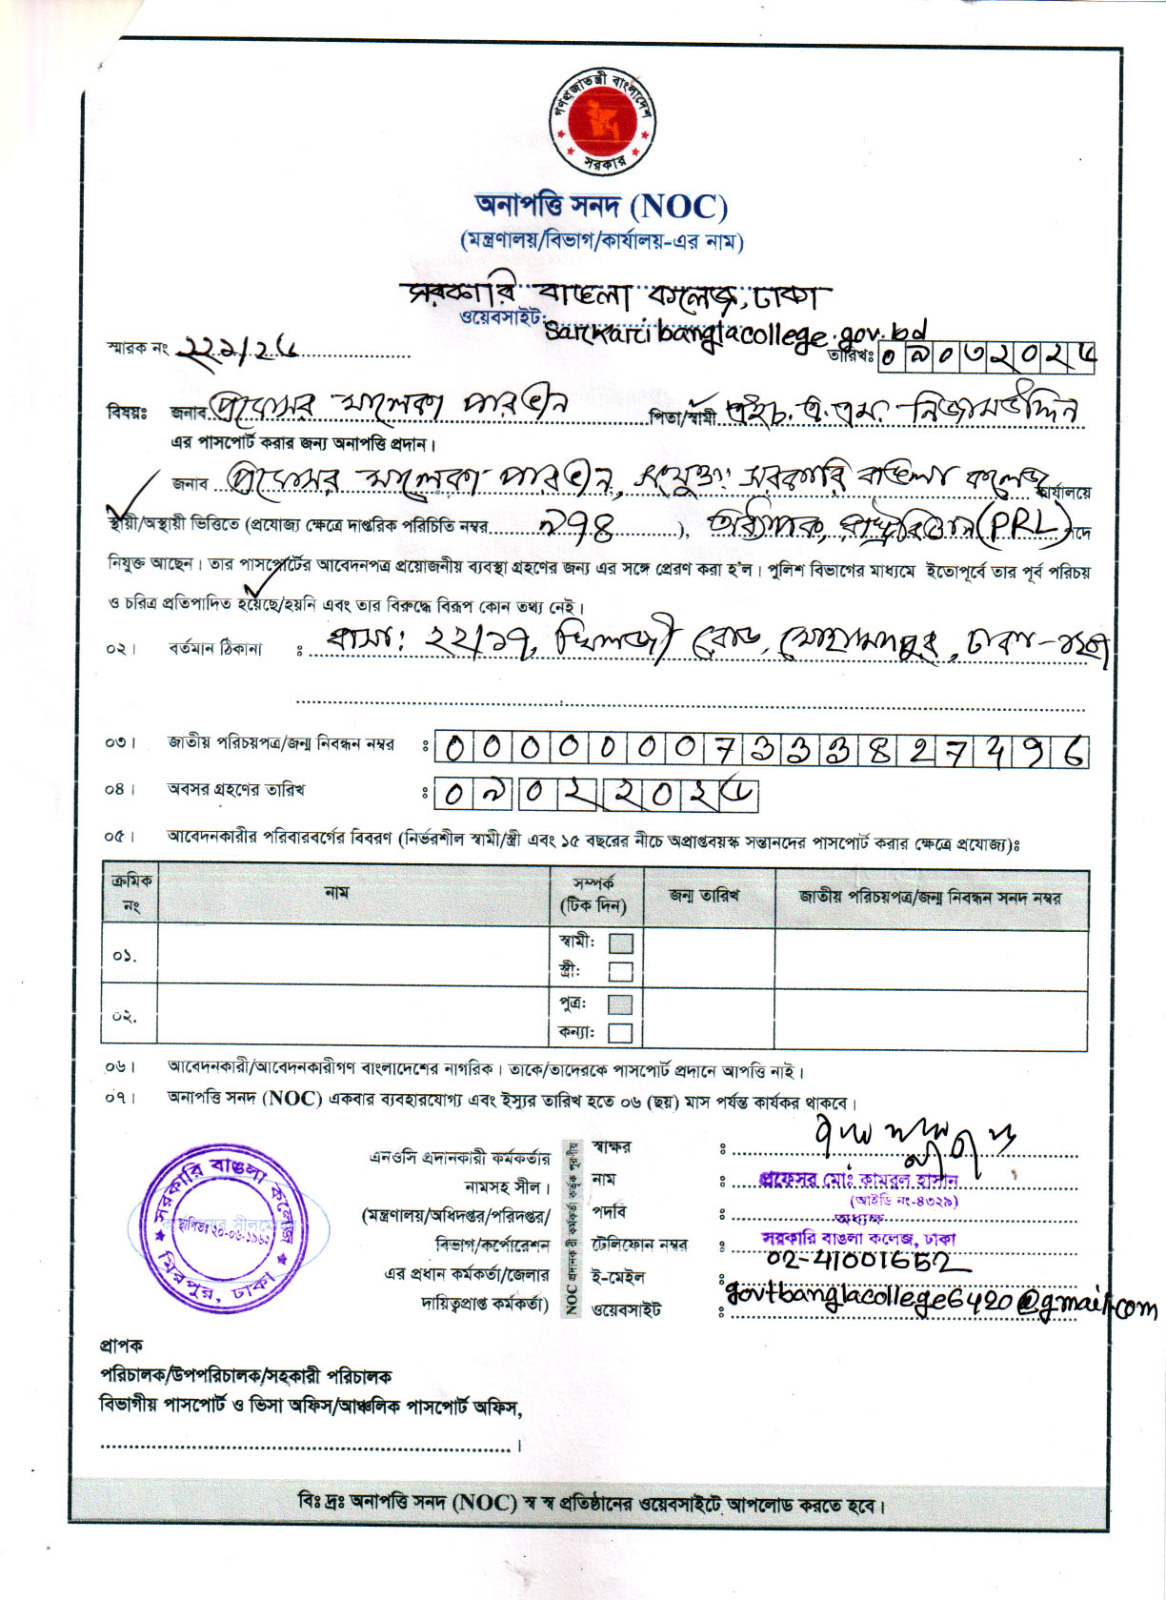 গণপ্রজাতন্ত্রী বাংলাদেশ
সরকার
অনাপত্তি সনদ (NOC)
(মন্ত্রণালয়/বিভাগ/কার্যালয়-এর নাম)
সরকারি বাঙলা কলেজ, ঢাকা
ওয়েবসাইট: sarkaribanglacollege.gov.bd
স্মারক নং ২২৯/২৫ তারিখঃ ০৯০৩২০২৫
বিষয়ঃ জনাব প্রফেসর মালেকা পারভীন পিতা/স্বামী এইচ. এ. এম. নিজামউদ্দিন
এর পাসপোর্ট করার জন্য অনাপত্তি প্রদান।
জনাব প্রফেসর মালেকা পারভীন, সংযুক্ত: সরকারি বাঙলা কলেজ কার্যালয়ে
স্থায়ী/অস্থায়ী ভিত্তিতে (প্রযোজ্য ক্ষেত্রে দাপ্তরিক পরিচিতি নম্বর ৯৭৪ ), অধ্যাপক, রাষ্ট্রবিজ্ঞান (PRL) পদে
নিযুক্ত আছেন। তার পাসপোর্টের আবেদনপত্র প্রয়োজনীয় ব্যবস্থা গ্রহণের জন্য এর সঙ্গে প্রেরণ করা হ'ল। পুলিশ বিভাগের মাধ্যমে ইতোপূর্বে তার পূর্ব পরিচয়
ও চরিত্র প্রতিপাদিত হয়েছে/হয়নি এবং তার বিরুদ্ধে বিরূপ কোন তথ্য নেই।
০২। বর্তমান ঠিকানা : বাসা: ২২/১৭, খিলজী রোড, মোহাম্মদপুর, ঢাকা-১২০৭
০৩। জাতীয় পরিচয়পত্র/জন্ম নিবন্ধন নম্বর ঃ 00000007333827496
০৪। অবসর গ্রহণের তারিখ ঃ ০৯০২২০২৫
০৫। আবেদনকারীর পরিবারবর্গের বিবরণ (নির্ভরশীল স্বামী/স্ত্রী এবং ১৫ বছরের নীচে অপ্রাপ্তবয়স্ক সন্তানদের পাসপোর্ট করার ক্ষেত্রে প্রযোজ্য)ঃ
ক্রমিক নং নাম সম্পর্ক (টিক দিন) জন্ম তারিখ জাতীয় পরিচয়পত্র/জন্ম নিবন্ধন সনদ নম্বর
০১. স্বামী:
স্ত্রী:
০২. পুত্র:
কন্যা:
০৬। আবেদনকারী/আবেদনকারীগণ বাংলাদেশের নাগরিক। তাকে/তাদেরকে পাসপোর্ট প্রদানে আপত্তি নাই।
০৭। অনাপত্তি সনদ (NOC) একবার ব্যবহারযোগ্য এবং ইস্যুর তারিখ হতে ০৬ (ছয়) মাস পর্যন্ত কার্যকর থাকবে।
সরকারি বাঙলা কলেজ
স্থাপিতঃ ২০-০৬-১৯৬২
মিরপুর, ঢাকা
এনওসি প্রদানকারী কর্মকর্তার
নামসহ সীল।
(মন্ত্রণালয়/অধিদপ্তর/পরিদপ্তর/
বিভাগ/কর্পোরেশন
এর প্রধান কর্মকর্তা/জেলার
দায়িত্বপ্রাপ্ত কর্মকর্তা)
NOC প্রদানকারী কর্মকর্তা কর্তৃক পূরণীয়
স্বাক্ষর ঃ
নাম ঃ প্রফেসর মোঃ কামরুল হাসান
(আইডি নং-৪৩২৯)
পদবি ঃ অধ্যক্ষ
সরকারি বাঙলা কলেজ, ঢাকা
টেলিফোন নম্বর ঃ 02-41001652
ই-মেইল ঃ govtbanglacollege6420@gmail.com
ওয়েবসাইট ঃ
প্রাপক
পরিচালক/উপপরিচালক/সহকারী পরিচালক
বিভাগীয় পাসপোর্ট ও ভিসা অফিস/আঞ্চলিক পাসপোর্ট অফিস,
।
বিঃ দ্রঃ অনাপত্তি সনদ (NOC) স্ব স্ব প্রতিষ্ঠানের ওয়েবসাইটে আপলোড করতে হবে।